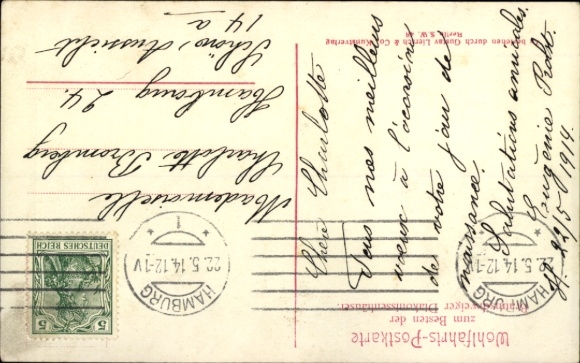 Wohlfahrts-Postkarte
zum Besten der
Braunschweiger Diakonissenhäuser.
HAMBURG
22.5.14.12-1V
1
HAMBURG
22.5.14.12-1V
DEUTSCHES REICH
5
5
Mademoiselle
Charlotte Bromberg
Hambourg 24.
Schöne Aussicht
14 a
Chère Charlotte
Tous nos meilleurs
vœux à l'occasion
de votre jour de
naissance.
Salutations amicales.
Eugénie
H. 22/5 1914.
zu beziehen durch Gustav Liersch & Co., Kunstverlag
Berlin S.W.